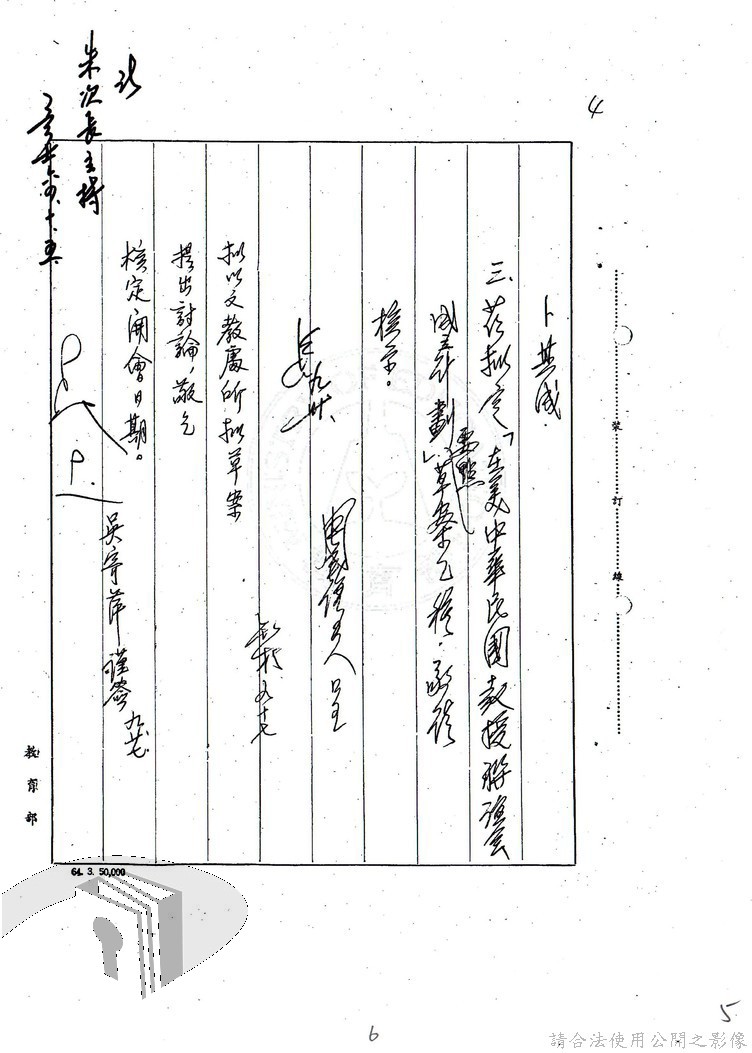 4
卜其成
三、茲擬定「在美中華民國教授聯誼會
成立計劃」要點草案乙種，敬請
核示。
擬以文教處所擬草案
提出討論，敬乞
核定開會日期。
吳寄萍 謹簽
請
朱次長主持
裝
訂
線
教育部
64. 3. 50,000
5
6
請合法使用公開之影像